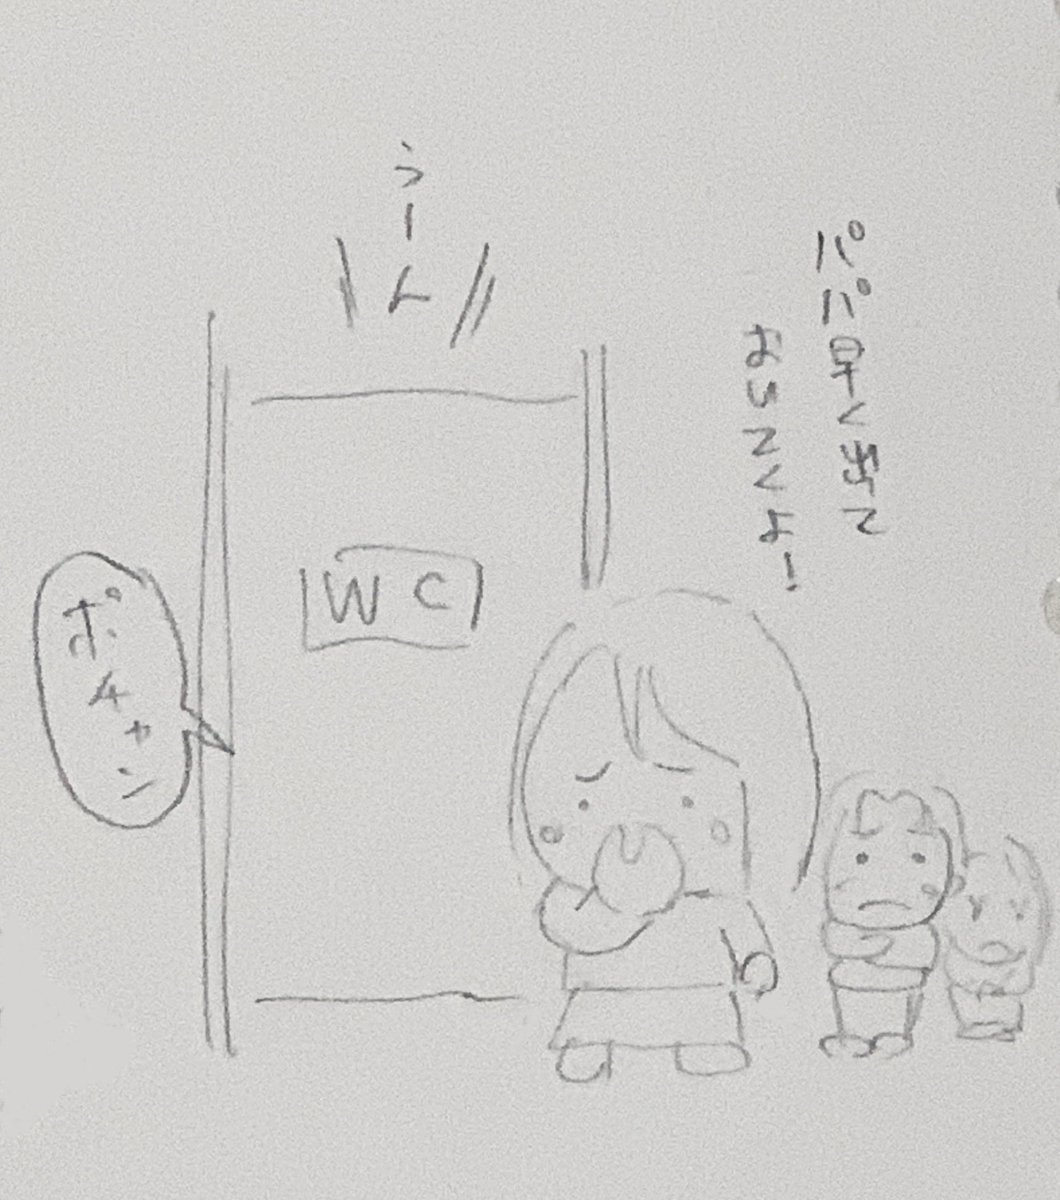 パパ早く出て
おいてくよ!
うーん
WC
ポチャン